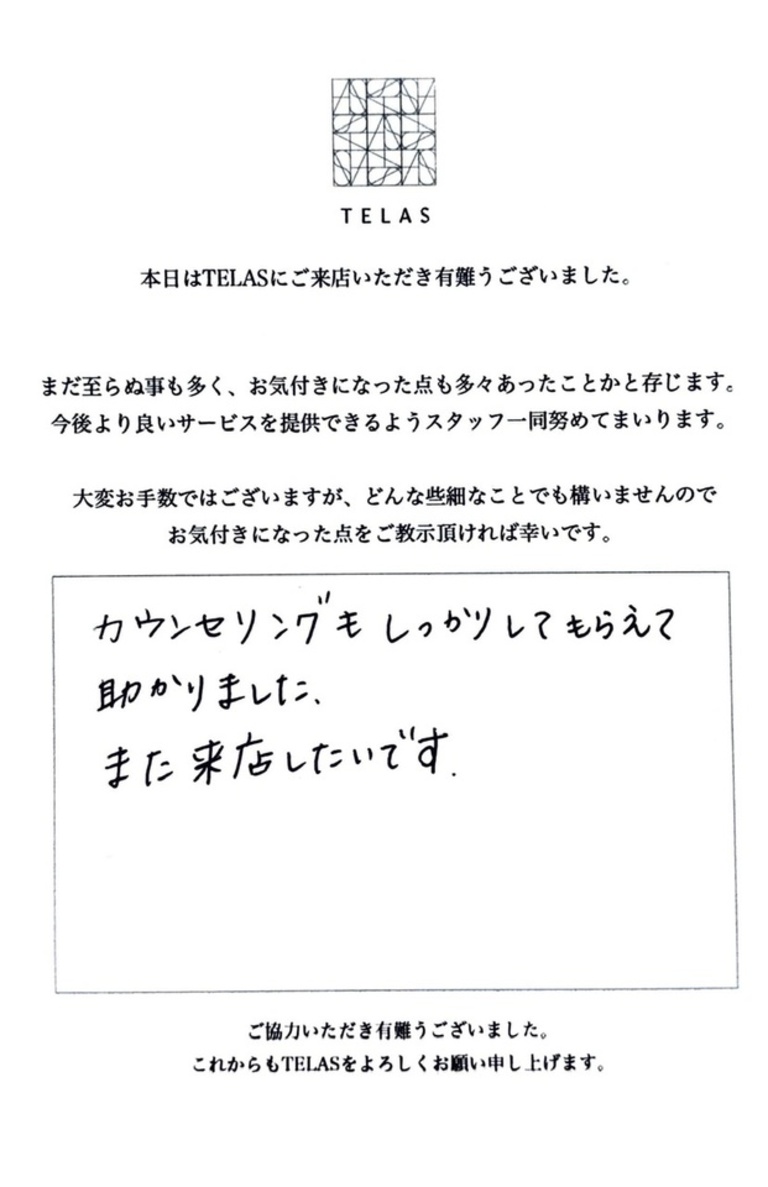 TELAS
本日はTELASにご来店いただき有難うございました。
まだ至らぬ事も多く、お気付きになった点も多々あったことかと存じます。
今後より良いサービスを提供できるようスタッフ一同努めてまいります。
大変お手数ではございますが、どんな些細なことでも構いませんので
お気付きになった点をご教示頂ければ幸いです。
カウンセリングも しっかりしてもらえて
助かりました、
また来店したいです.
ご協力いただき有難うございました。
これからもTELASをよろしくお願い申し上げます。